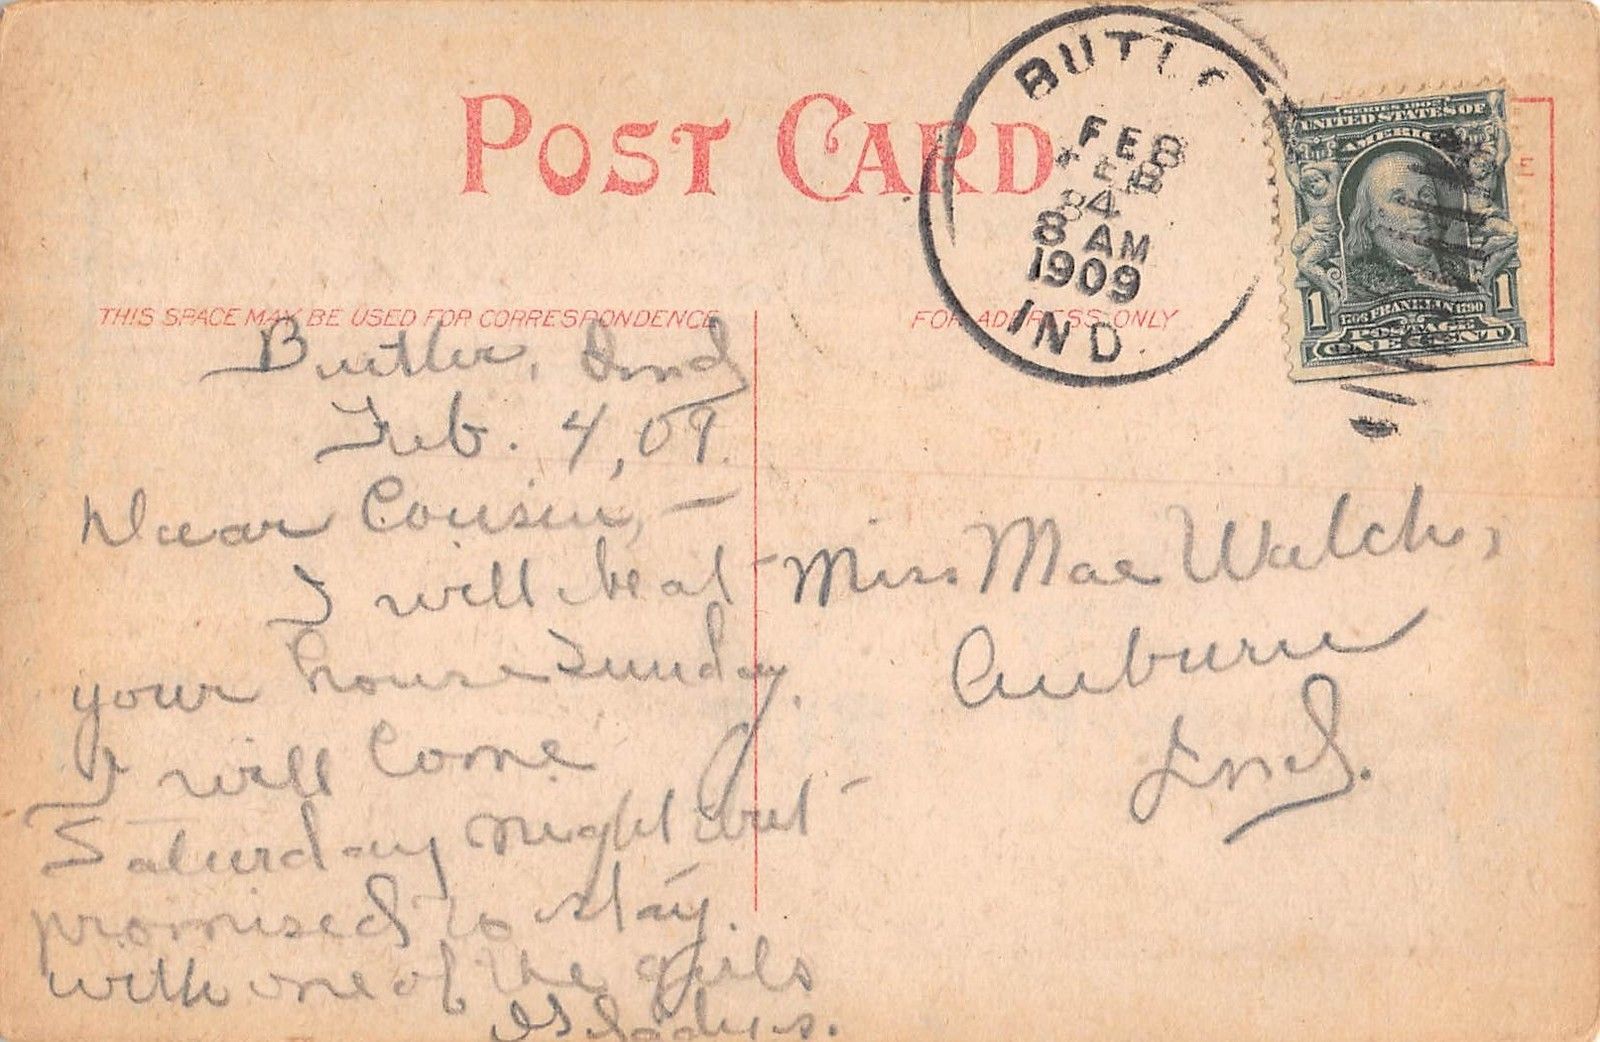 POST CARD
BUTLE
FEB
4
8 AM
1909
IND.
UNITED STATES OF
AMERICA
1706 FRANKLIN 1790
POSTAGE
1 ONE CENT 1
E
THIS SPACE MAY BE USED FOR CORRESPONDENCE
FOR ADDRESS ONLY
Butler, Ind
Feb. 4, 09.
Dear Cousin, —
I will be at
your house Sunday.
I will Come
Saturday night but
promised to stay.
with one of the girls
Gladys.
Miss Mae Walch,
Auburn
Ind.